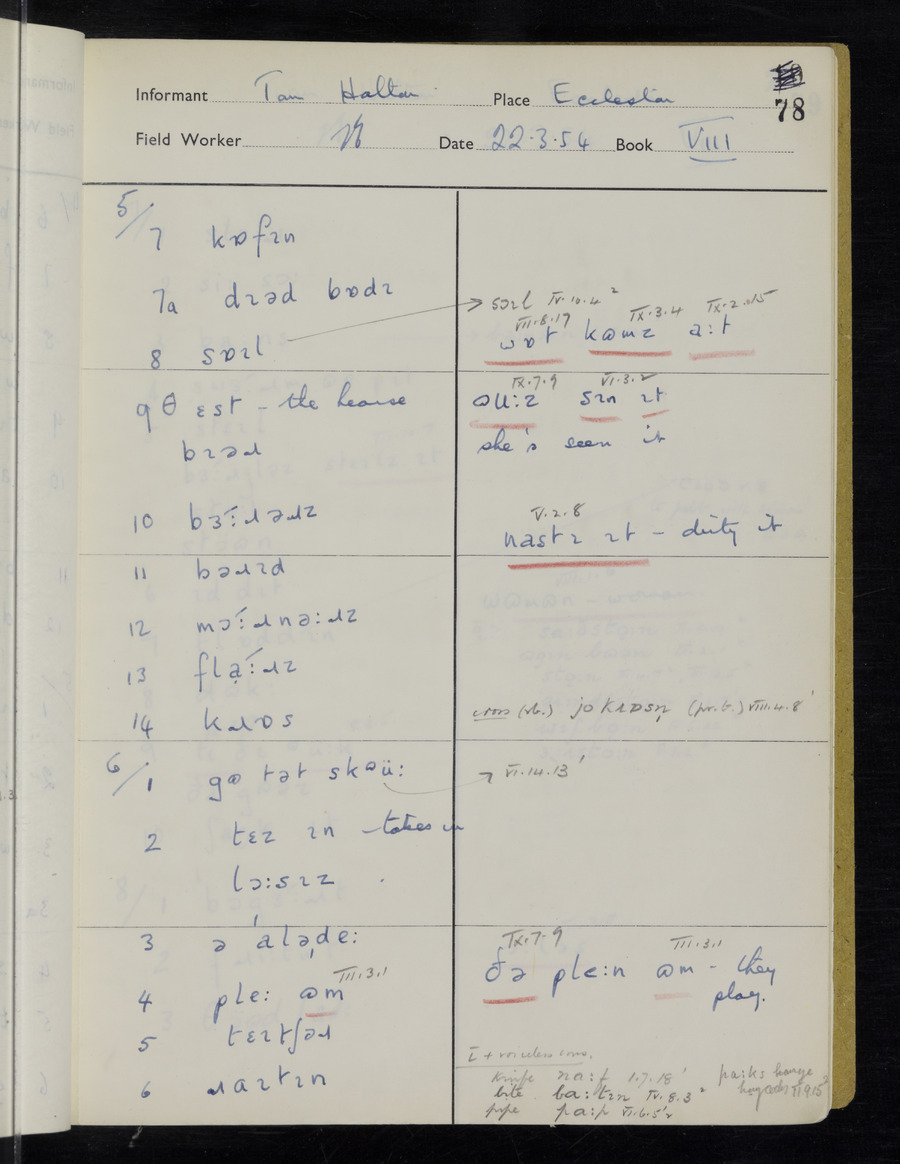 Informant Tom Halton Place Eccleston
78
Field Worker Date 22.3.54 Book VIII
5/
7 kɒfɪn
7a dɪəd bɒdɪ
8 sɒɪl
sɔɪl IV.10.4 2
VII.8.17 IX.3.4 IX.2.15
wɒt kɷmz a:t
9 θ ɛst - the hearse
bɪəɹ
IX.7.9 VI.3.2
sɪn ɪt
she's seen it
10 bɜ́:ɹəɹz
V.2.8
nastɪ ɪt - dirty it
11 bəɹɪd
12 mɔ́:ɹnə:ɹz
13 flạ́:ɹz
14 kɹɒs
cross (vb.) jo kɹɒsn̩ (pr.t.) VIII.4.8'
6/
1 gɷ tət skɷü:
VI.14.13'
2 tɛz ɪn - takes in
lɔ:sɪz
3 ə 'alə̩de:
4 ple: ɷm III.3.1
IX.7.9 III.3.1
ðə ple:n ɷm - they
play.
5 tɛɪtʃəɹ
6 ɹaɪtɪn
ī + voiceless cons.
knife na:f I.7.18'
bite ba:tɪn IV.8.3 2
pipe pa:p